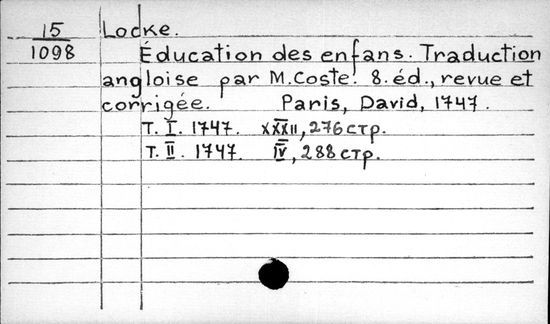 15
1098
Locke.
Éducation des enfans. Traduction
angloise par M. Coste. 8. éd., revue et
corrigée. Paris, David, 1747.
T. I. 1747. XXXII, 276 стр.
T. II. 1747. IV, 288 стр.